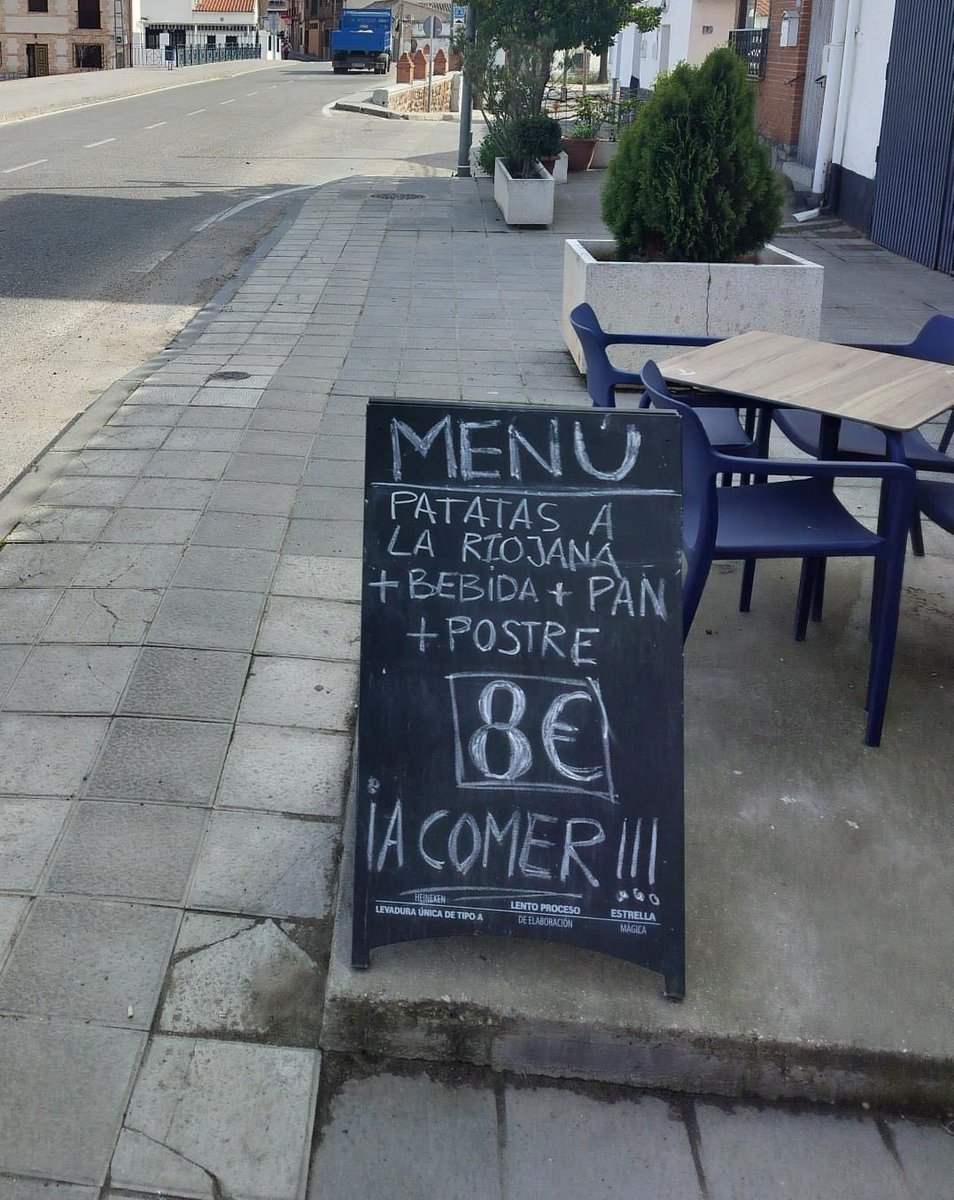 MENÚ
PATATAS A
LA RIOJANA
+ BEBIDA + PAN
+ POSTRE
8€
¡A COMER!!!
HEINEKEN
LEVADURA ÚNICA DE TIPO A
LENTO PROCESO
DE ELABORACIÓN
ESTRELLA
MÁGICA